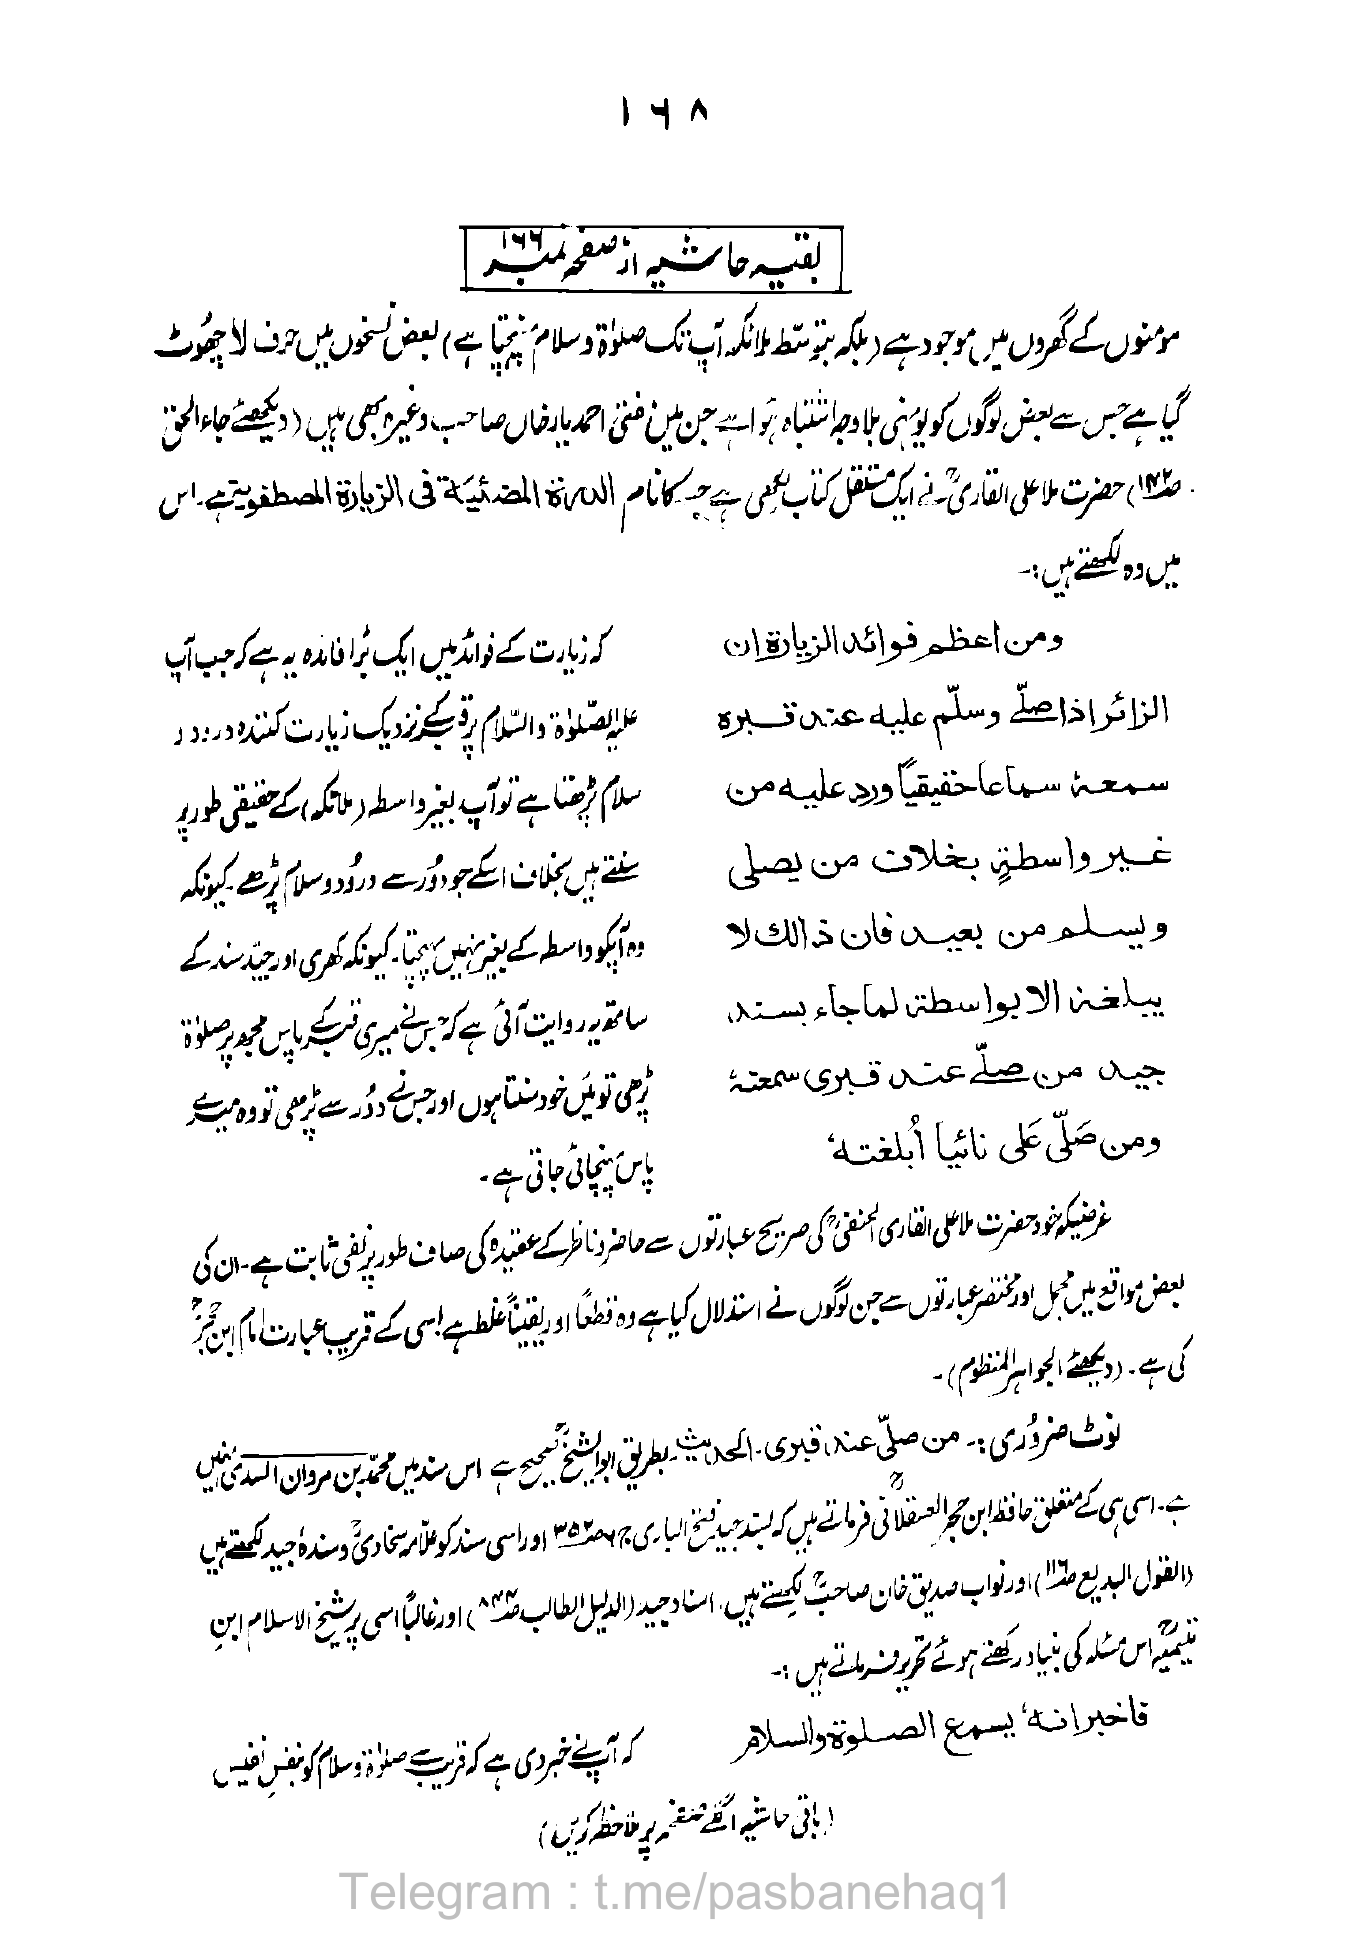 ۱۶۸
بقیہ حاشیہ از صفحہ نمبر ۱۶۶
مومنوں کے گھروں میں موجود ہے (بلکہ بتوسّط ملائکہ آپ تک صلوٰۃ و سلام پہنچتا ہے) بعض نسخوں میں حرف لا چھُوٹ
گیا ہے جس سے بعض لوگوں کو یُونہی بلا وجہ اشتباہ ہُوا ہے جن میں مفتی احمد یار خاں صاحب وغیرہ بھی ہیں (دیکھئے جاء الحق
صـ۱۴۲) حضرت ملا علی القاریؒ نے ایک مستقل کتاب لکھی ہے جس کا نام الدرۃ المضئیۃ فی الزیارۃ المصطفویۃ ہے۔ اس
میں وہ لکھتے ہیں :۔
ومن اعظم فوائد الزیارۃ ان
الزائر اذا صلّے وسلّم علیہ عند قبرہ
سمعہٗ سماعا حقیقیاً ورد علیہ من
غیر واسطۃٍ بخلاف من یصلی
ویسلم من بعید فان ذالک لا
یبلغہٗ الا بواسطۃ لما جاء بسند
جید من صلّے عند قبری سمعتہٗ
ومن صَلّی عَلی نائیا اُبلغتہٗ
کہ زیارت کے فوائد میں ایک بڑا فائدہ یہ ہے کہ جب آپ
علیہ الصّلوٰۃ والسّلام پر قبر کے نزدیک زیارت کنندہ درود و
سلام پڑھتا ہے تو آپ بغیر واسطہ (ملائکہ) کے حقیقی طور پر
سنتے ہیں بخلاف اسکے جو دُور سے درُود و سلام پڑھے۔ کیونکہ
وہ آپکو واسطہ کے بغیر نہیں پہنچتا۔ کیونکہ کھری اور جیّد سند کے
ساتھ یہ روایت آئی ہے کہ جس نے میری قبر کے پاس مجھ پر صلوٰۃ
پڑھی تو میں خود سنتا ہوں اور جس نے دُور سے پڑھی تو وہ میرے
پاس پہنچائی جاتی ہے۔
غرضیکہ خود حضرت ملا علی القاری الحنفیؒ کی صریح عبارتوں سے حاضر و ناظر کے عقیدہ کی صاف طور پر نفی ثابت ہے۔ ان کی
بعض مواقع میں مجمل اور مختصر عبارتوں سے جن لوگوں نے استدلال کیا ہے وہ قطعاً اور یقیناً غلط ہے اسی کے قریب عبارت امام ابن حجرؒ
کی ہے۔ (دیکھئے الجواہر المنظوم)۔
نوٹ ضرُوری :۔ من صلّی عند قبری۔ الحدیث۔ بطریق ابو الشیخؒ صحیح ہے اس سند میں محمّد بن مروان السدی نہیں
ہے۔ اسی ہی کے متعلق حافظ ابن حجر العسقلانیؒ فرماتے ہیں کہ بسند جید فتح الباری ج۶ صـ۳۵۲ اور اسی سند کو علّامہ سخاویؒ وسندہٗ جید لکھتے ہیں
(القول البدیع صـ۱۱۶) اور نواب صدیق خان صاحبؒ لکھتے ہیں۔ اسناد جید (الدلیل الطالب صـ۸۴۴) اور غالباً اسی پر شیخ الاسلام ابنِ
تیمیہؒ اس مسٔلہ کی بنیاد رکھتے ہوئے تحریر فرماتے ہیں :۔
فاخبر انہٗ یسمع الصلوۃ والسلام
کہ آپ نے خبر دی ہے کہ قریب سے صلوٰۃ و سلام کو بنفسِ نفیس
(باقی حاشیہ اگلے صفحہ پر ملاحظہ کریں)
Telegram : t.me/pasbanehaq1